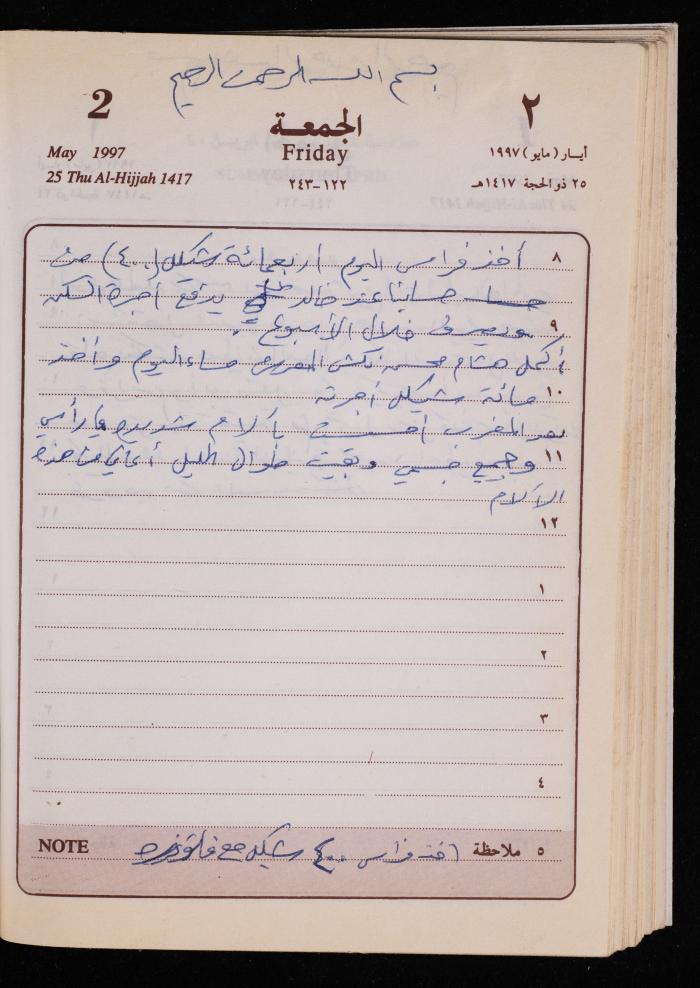 بسم الله الرحمن الرحيم
2
٢
الجمعة
Friday
May 1997
أيار (مايو) ١٩٩٧
25 Thu Al-Hijjah 1417
٢٥ ذو الحجة ١٤١٧هـ
١٢٢-٢٤٣
٨ أخذ فراس اليوم أربعمائة شيكل (٤٠٠) من
حسابنا عند خالد يدفع أجرة السكن
٩ خلال الأسبوع.
أكمل هشام محمد نكش مساء اليوم وأخذ
١٠ مائة شيكل أجرته
بعد المغرب أحسست بآلام شديدة في رأسي
١١ وجميع جسمي وبقيت طوال الليل أعاني من هذه
الآلام
١٢
١
٢
٣
٤
NOTE ٥ ملاحظة اخذ فراس ٤٠٠ شيكل مع